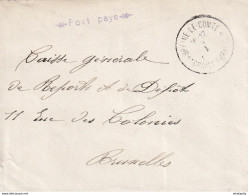 Port payé
BRAINE LE COMTE
Caisse générale
de Reports et de Dépôt
11 Rue des Colonies
Bruxelles